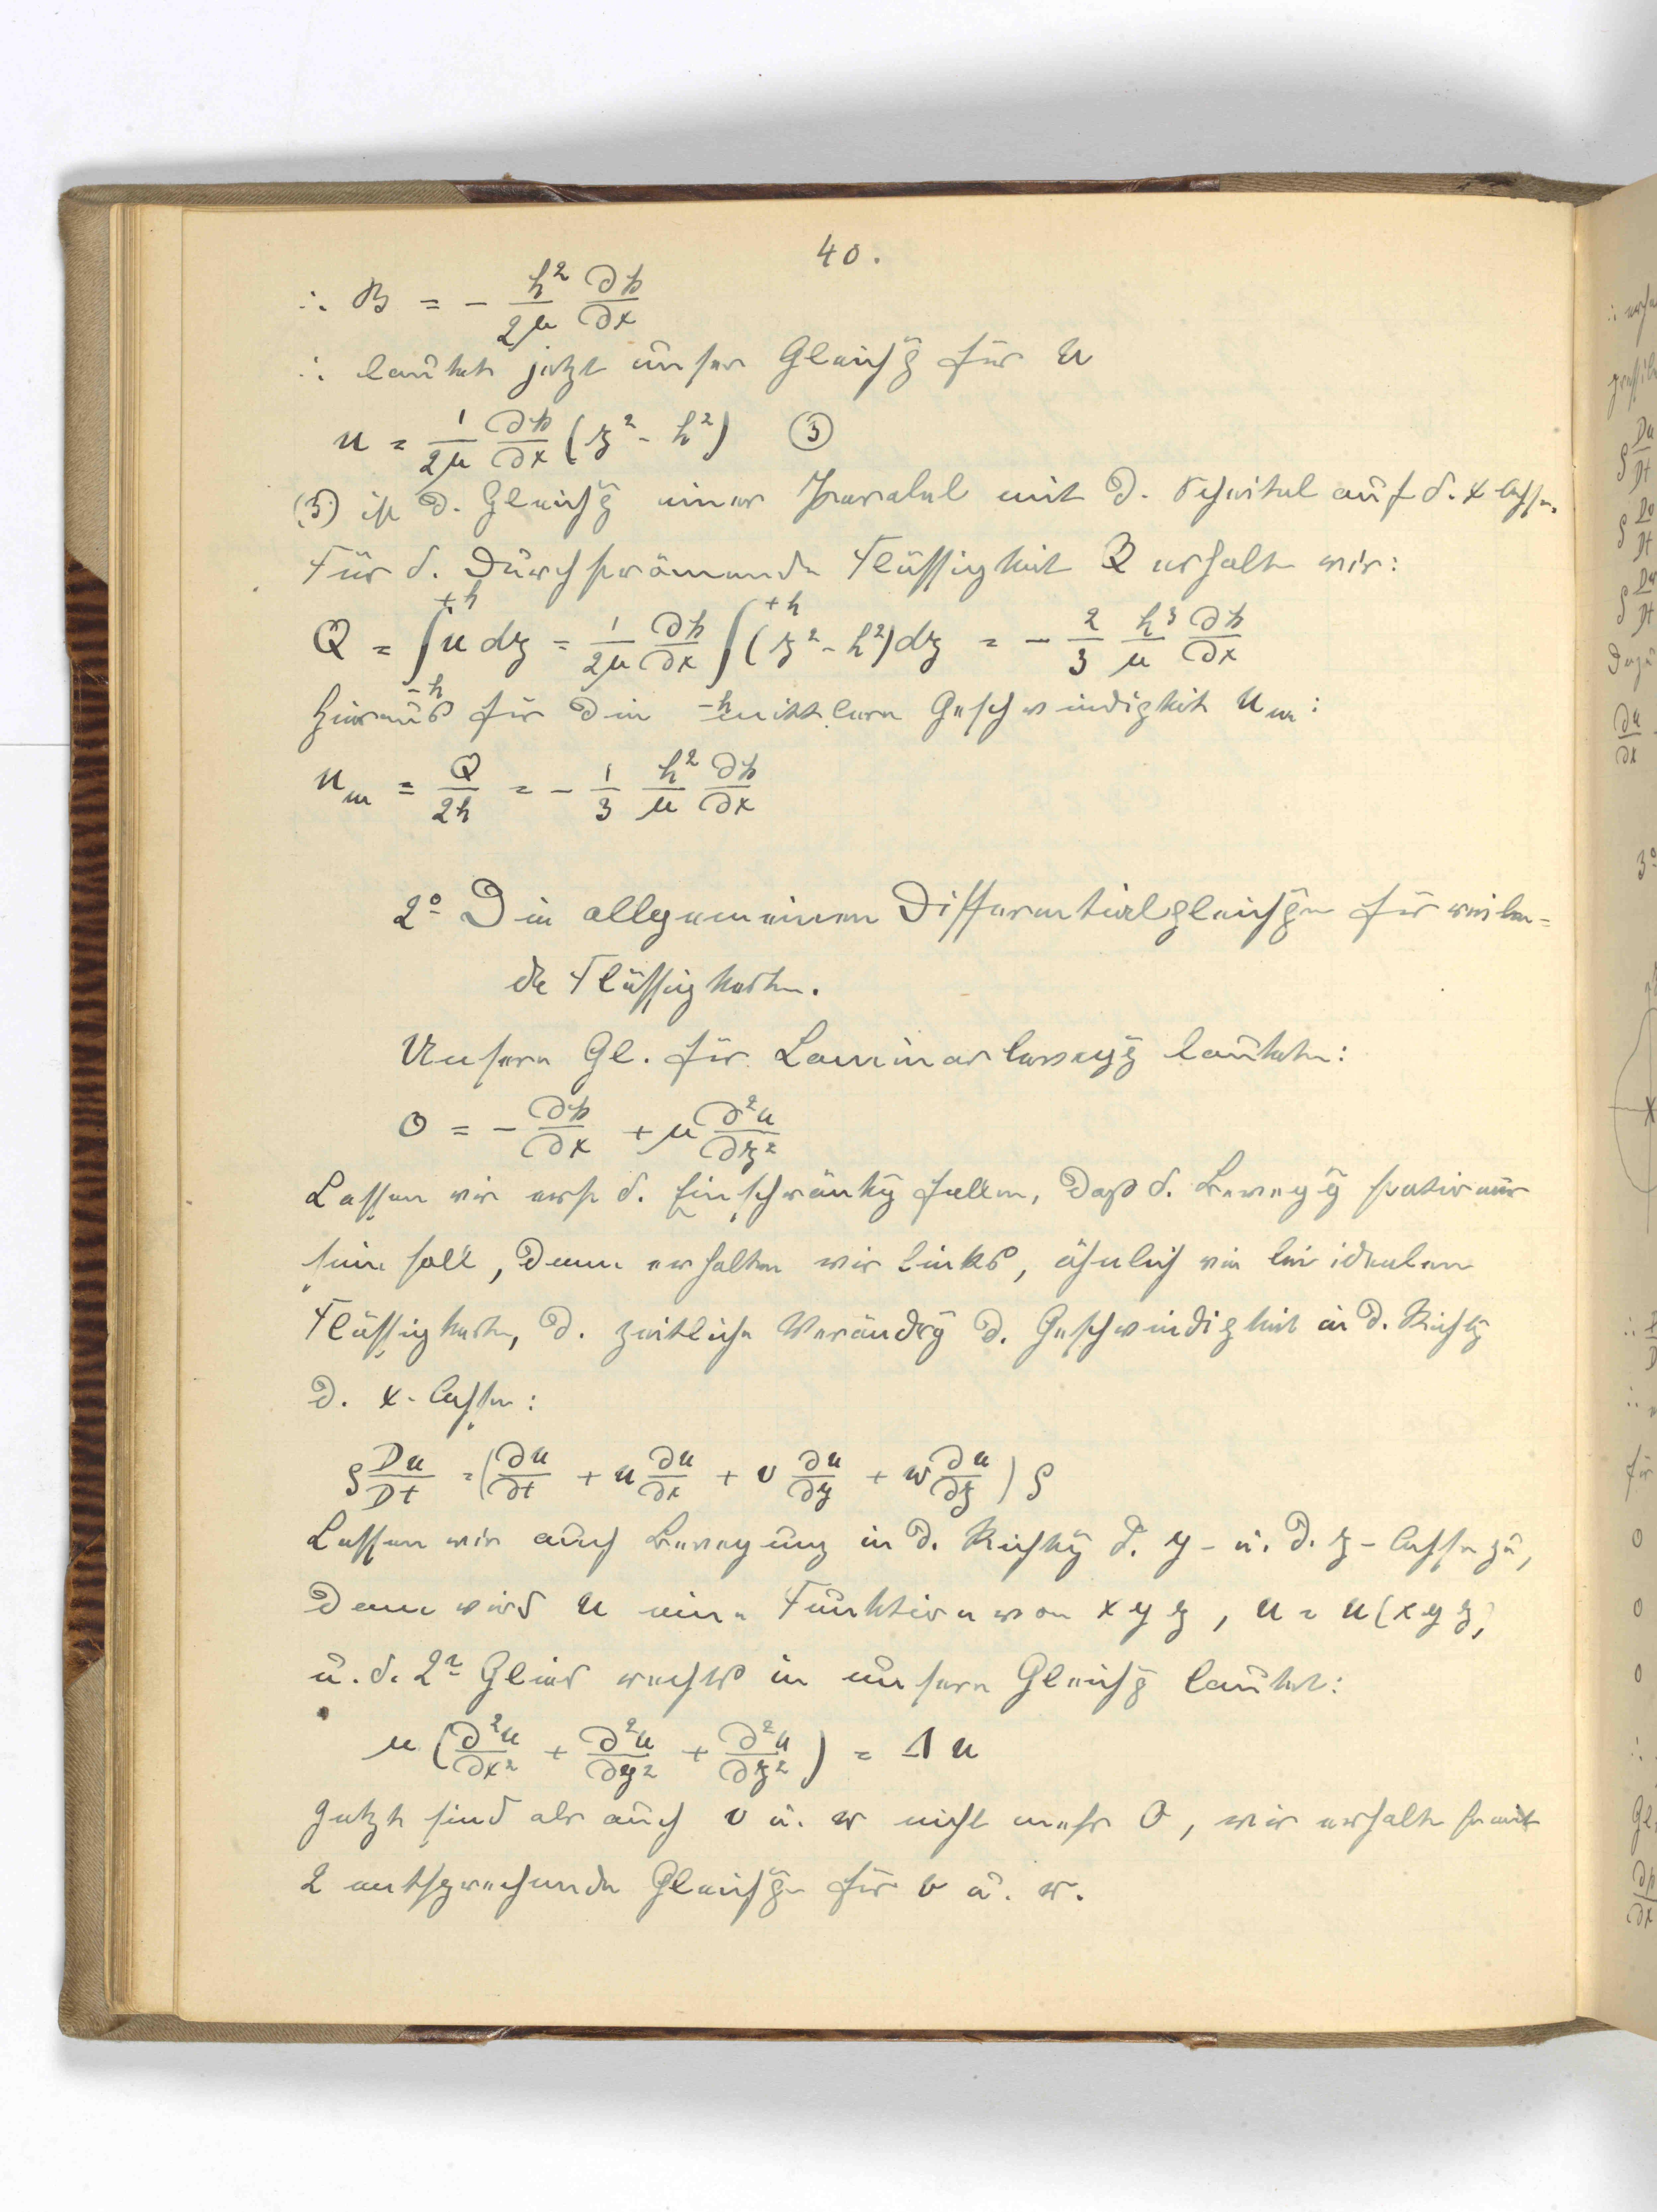 40.
∴ B = - h²/2μ ∂p/∂x
∴ lautet jetzt unsere Gleichg für u
u = 1/2μ ∂p/∂x (z² - h²) ③
(3) ist d. Gleichg einer Parabel mit d. Scheitel auf d. x Achse.
Für d. durchströmende Flüssigkeit Q erhalten wir:
Q = ∫₋ₕ⁺ʰ u dz = 1/2μ ∂p/∂x ∫₋ₕ⁺ʰ (z² - h²) dz = - 2/3 h³/μ ∂p/∂x
Hieraus für die mittlere Geschwindigkeit uₘ:
uₘ = Q/2h = - 1/3 h²/μ ∂p/∂x
2° Die allgemeinen Differentialgleichgn für
de Flüssigkeiten.
Unsere Gl. für Laminarbewegg lautete:
0 = - ∂p/∂x + μ ∂²u/∂z²
Lassen wir erst d. Einschränkg fallen, dass d. Bewegg stationär
sein soll, dann erhalten wir links, ähnlich wie bei idealen
Flüssigkeiten, d. zeitliche Verändrg d. Geschwindigkeit in d. Richtg
d. x-Achse:
ρ Du/Dt = (∂u/∂t + u ∂u/∂x + v ∂u/∂y + w ∂u/∂z) ρ
Lassen wir auch Bewegung in d. Richtg d. y- u. d. z-Achse zu,
dann wird u eine Funktion von x y z, u = u(x y z)
u. d. 2te Glied rechts in unsere Gleichg lautet:
μ (∂²u/∂x² + ∂²u/∂y² + ∂²u/∂z²) = Δ u
Jetzt sind aber auch v u. w nicht mehr 0, wir erhalten somit
2 entsprechende Gleichgn für v u. w.